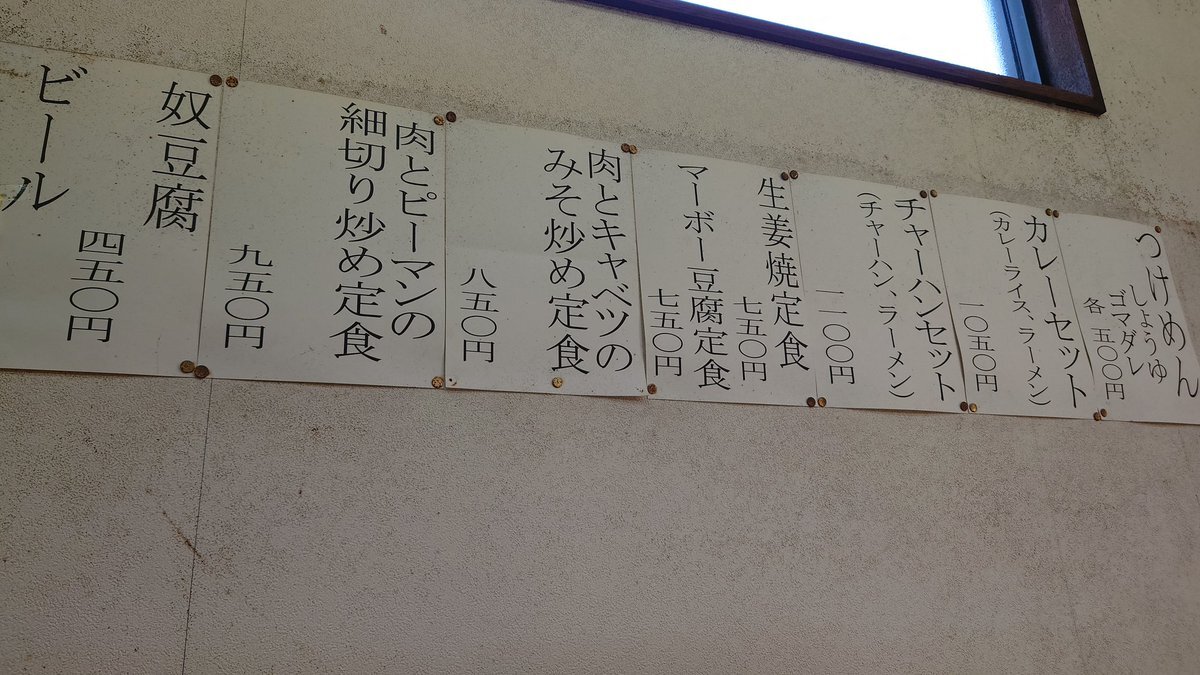 つけめん
しょうゆ
ゴマダレ
各 五〇〇円
カレーセット
(カレーライス、ラーメン)
一〇五〇円
チャーハンセット
(チャーハン、ラーメン)
一一〇〇円
生姜焼定食
七五〇円
マーボー豆腐定食
七五〇円
肉とキャベツの
みそ炒め定食
八五〇円
肉とピーマンの
細切り炒め定食
九五〇円
奴豆腐
四五〇円
ビール